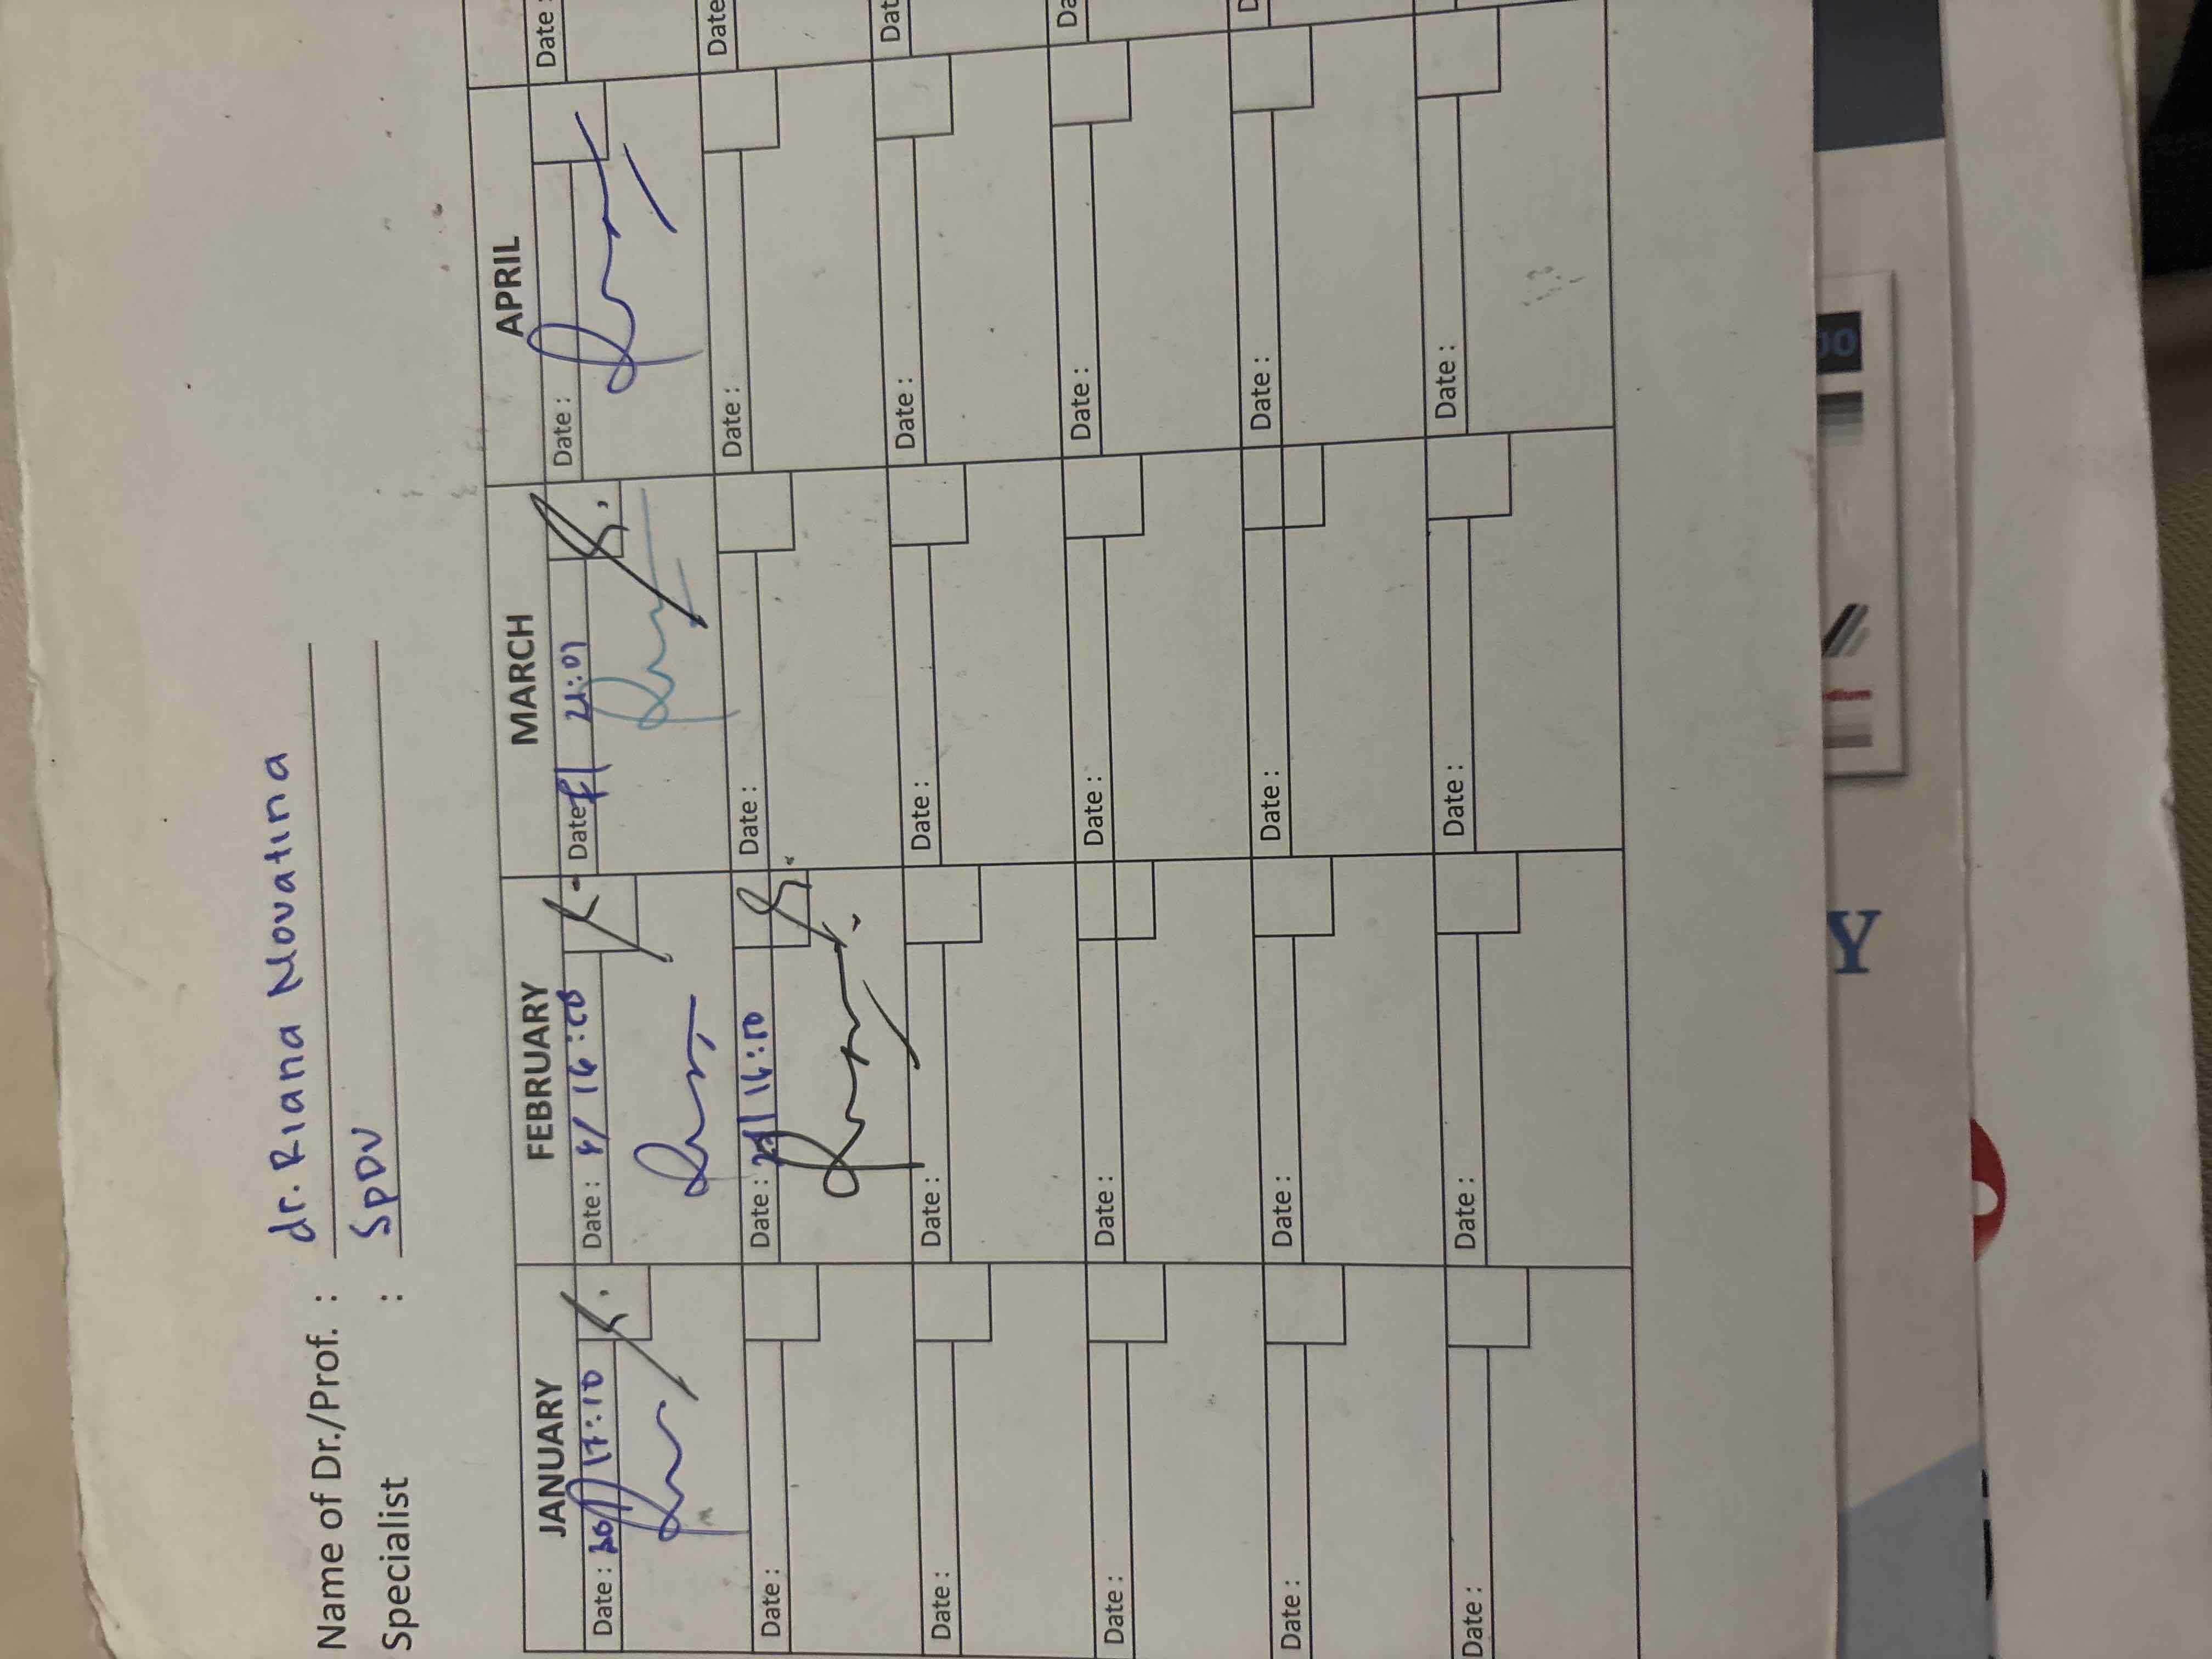 Name of Dr./Prof. : dr. Riana Novatina
Specialist : SpDV
JANUARY FEBRUARY MARCH APRIL
Date : 20/ 17:10 Date : 4/ 16:00 Date : 21:01 Date : Date :
Date : Date : 16:10 Date : Date : Date
Date : Date : Date : Date : Dat
Date : Date : Date : Date : Da
Date : Date : Date : Date : D
Date : Date : Date : Date :
Y